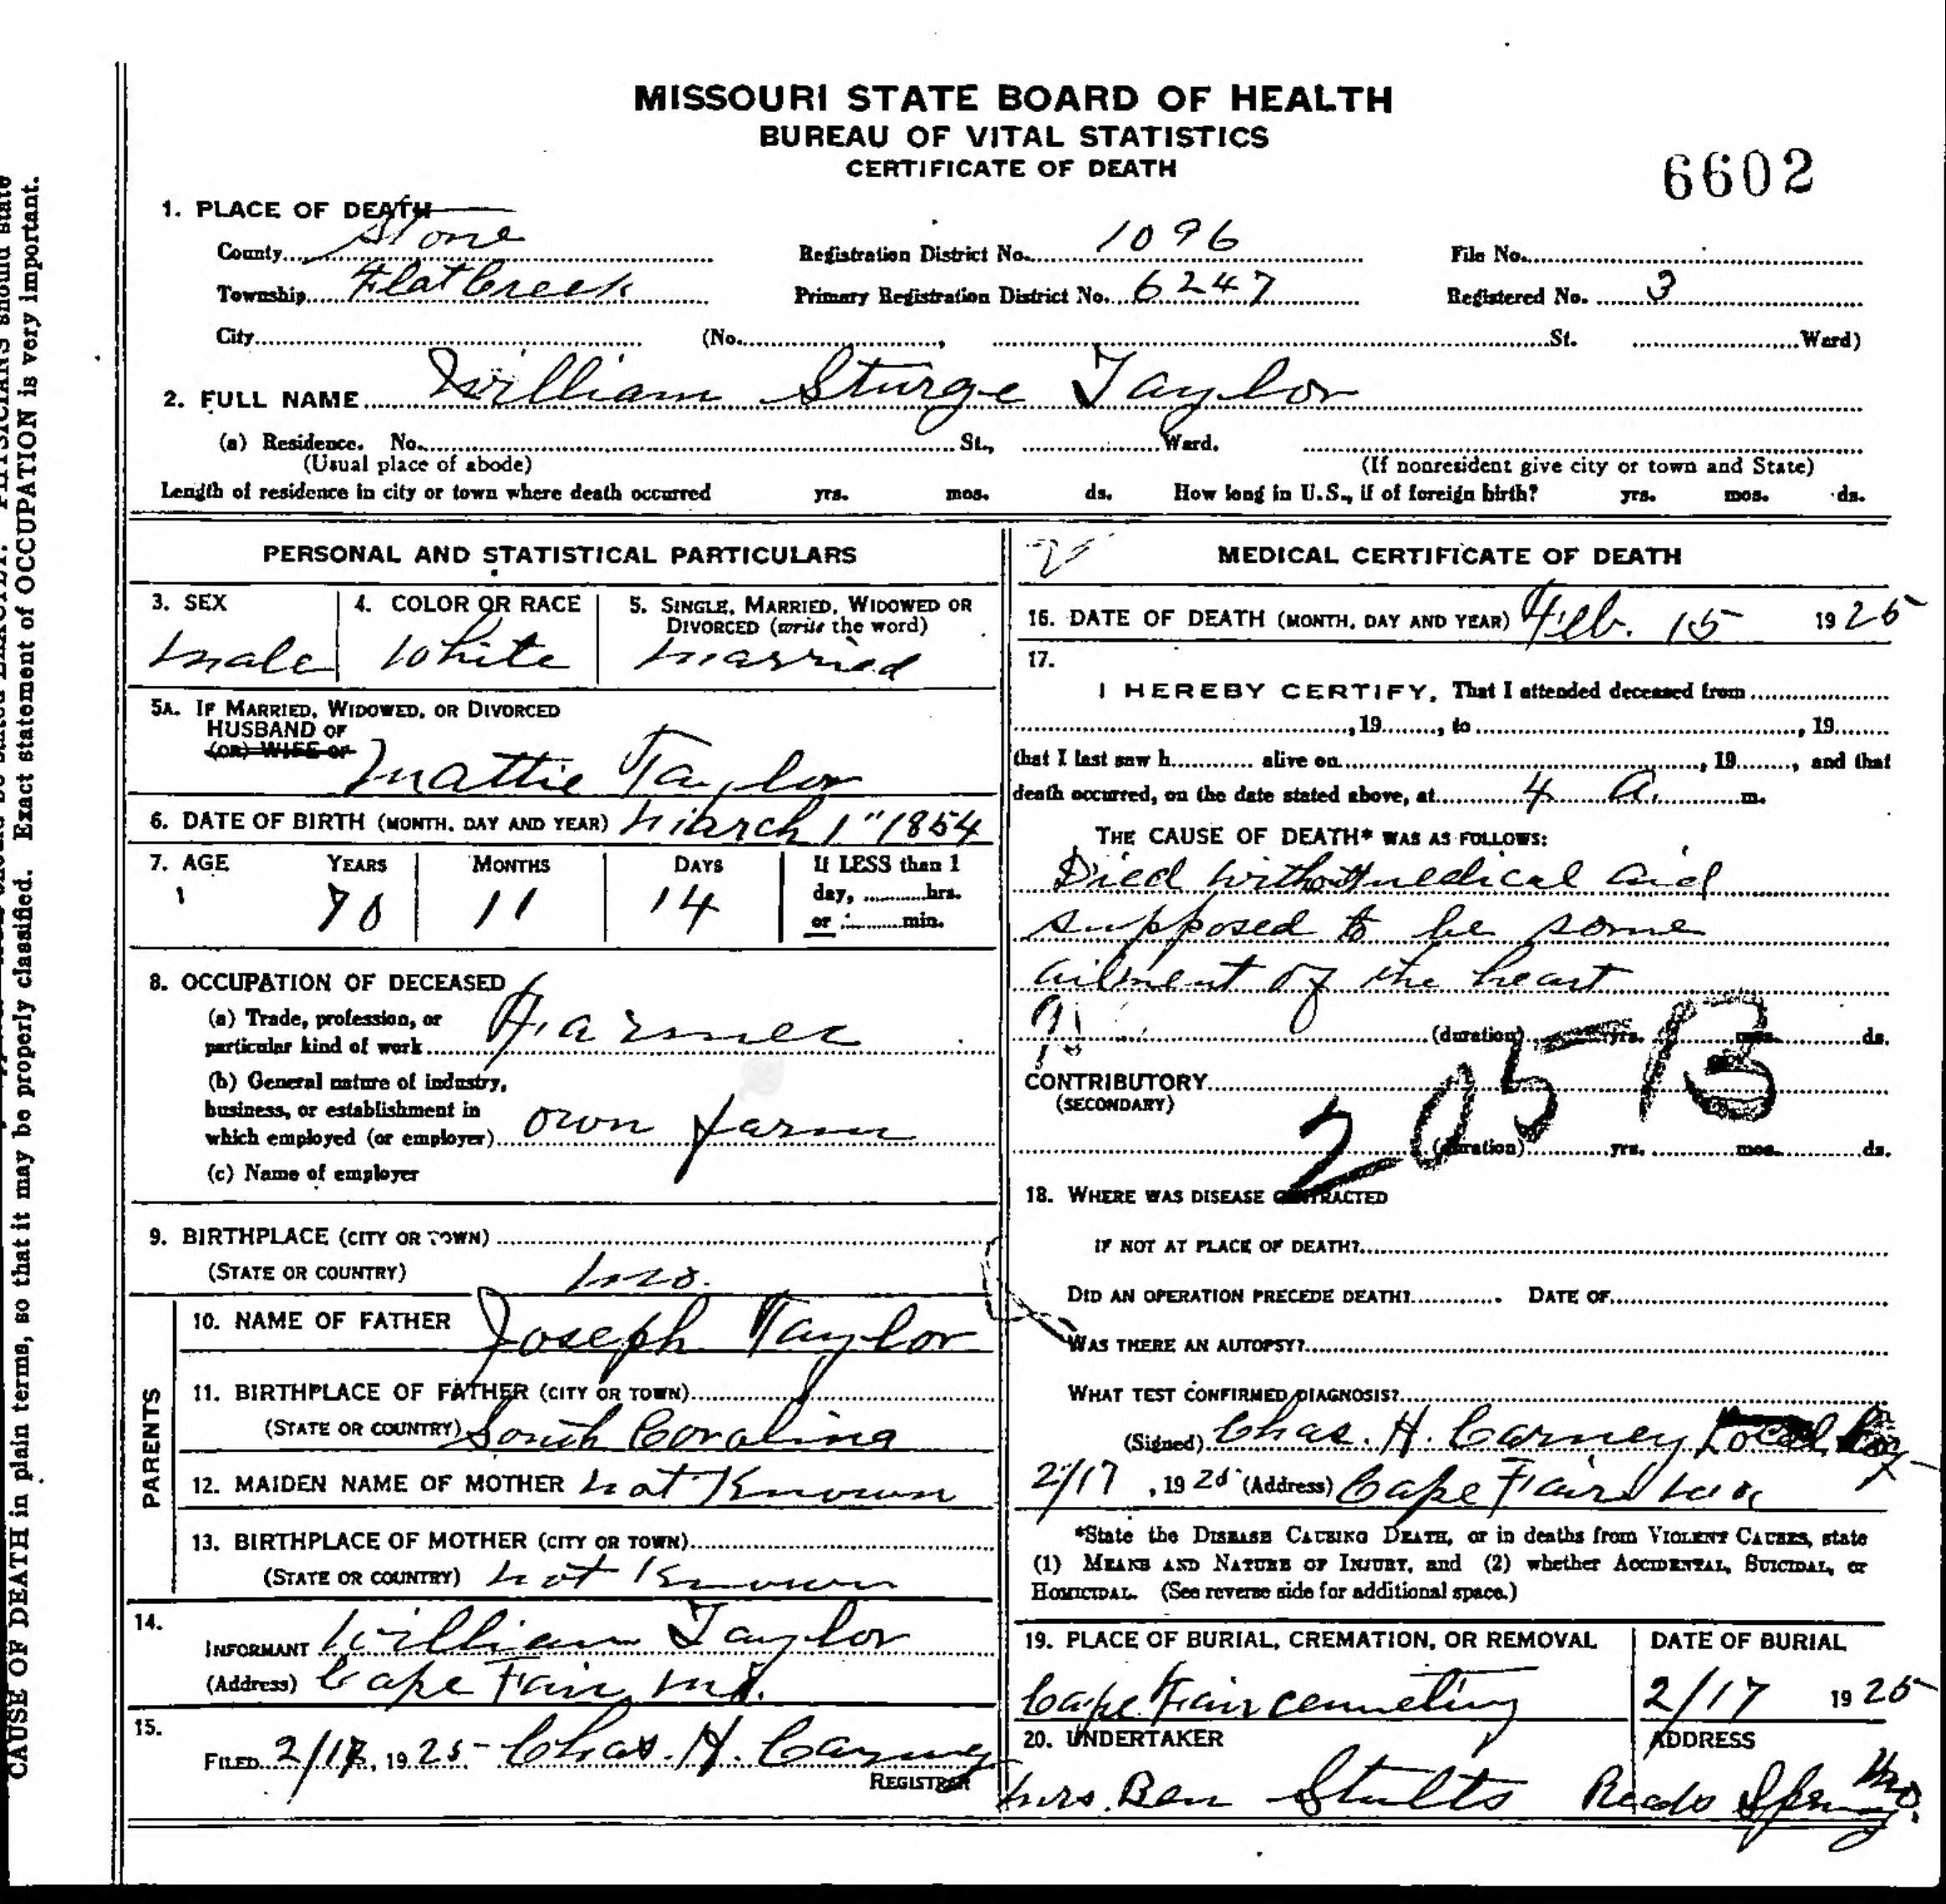 MISSOURI STATE BOARD OF HEALTH
BUREAU OF VITAL STATISTICS
CERTIFICATE OF DEATH
6602
1. PLACE OF DEATH
County Stone Registration District No. 1096 File No.
Township Flatcreek Primary Registration District No. 6247 Registered No. 3
City (No. , St. Ward)
2. FULL NAME William Sturge Taylor
(a) Residence. No. St., Ward.
(Usual place of abode) (If nonresident give city or town and State)
Length of residence in city or town where death occurred yrs. mos. ds. How long in U.S., if of foreign birth? yrs. mos. ds.
PERSONAL AND STATISTICAL PARTICULARS
3. SEX 4. COLOR OR RACE 5. SINGLE, MARRIED, WIDOWED OR
DIVORCED (write the word)
male White married
5A. IF MARRIED, WIDOWED, OR DIVORCED
HUSBAND OF
(OR) WIFE OF
Mattie Taylor
6. DATE OF BIRTH (MONTH, DAY AND YEAR) March 1" 1854
7. AGE YEARS MONTHS DAYS If LESS than 1
day, hrs.
or min.
70 11 14
8. OCCUPATION OF DECEASED
(a) Trade, profession, or
particular kind of work Farmer
(b) General nature of industry,
business, or establishment in
which employed (or employer) own farm
(c) Name of employer
9. BIRTHPLACE (CITY OR TOWN)
(STATE OR COUNTRY) Mo.
PARENTS
10. NAME OF FATHER Joseph Taylor
11. BIRTHPLACE OF FATHER (CITY OR TOWN)
(STATE OR COUNTRY) South Coralina
12. MAIDEN NAME OF MOTHER not Known
13. BIRTHPLACE OF MOTHER (CITY OR TOWN)
(STATE OR COUNTRY) not Known
14.
INFORMANT William Taylor
(Address) Cape Fair, Mo.
15.
FILED 2/17, 1925 Chas. H. Carney
REGISTRAR
MEDICAL CERTIFICATE OF DEATH
16. DATE OF DEATH (MONTH, DAY AND YEAR) Feb. 15 1925
17.
I HEREBY CERTIFY, That I attended deceased from
, 19 , to , 19
that I last saw h alive on , 19 , and that
death occurred, on the date stated above, at 4 A. m.
THE CAUSE OF DEATH* WAS AS FOLLOWS:
Died without medical aid
supposed to be some
ailment of the heart
(duration) yrs. mos. ds.
CONTRIBUTORY
(SECONDARY)
205 B
(duration) yrs. mos. ds.
18. WHERE WAS DISEASE CONTRACTED
IF NOT AT PLACE OF DEATH?
DID AN OPERATION PRECEDE DEATH? DATE OF
WAS THERE AN AUTOPSY?
WHAT TEST CONFIRMED DIAGNOSIS?
(Signed) Chas. H. Carney Local Reg
2/17, 1925 (Address) Cape Fair Mo
*State the DISEASE CAUSING DEATH, or in deaths from VIOLENT CAUSES, state
(1) MEANS AND NATURE OF INJURY, and (2) whether ACCIDENTAL, SUICIDAL, or
HOMICIDAL. (See reverse side for additional space.)
19. PLACE OF BURIAL, CREMATION, OR REMOVAL DATE OF BURIAL
Cape Fair cemetery 2/17 1925
20. UNDERTAKER ADDRESS
Mrs. Ben Stults Reeds Spring Mo.
CAUSE OF DEATH in plain terms, so that it may be properly classified. Exact statement of OCCUPATION is very important.